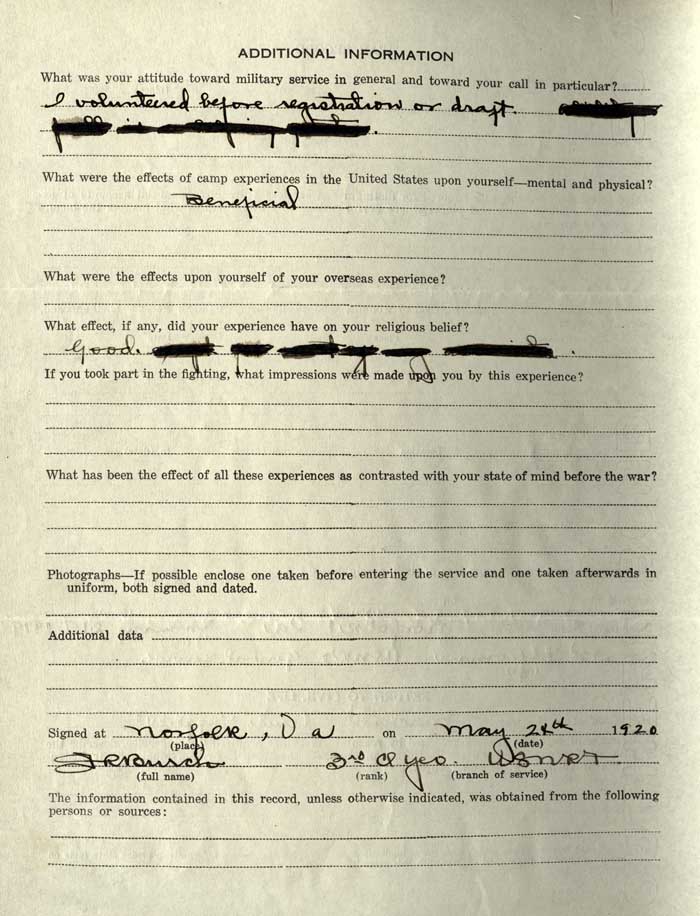 ADDITIONAL INFORMATION
What was your attitude toward military service in general and toward your call in particular?
I volunteered before registration or draft.
What were the effects of camp experiences in the United States upon yourself—mental and physical?
Beneficial
What were the effects upon yourself of your overseas experience?
What effect, if any, did your experience have on your religious belief?
Good.
If you took part in the fighting, what impressions were made upon you by this experience?
What has been the effect of all these experiences as contrasted with your state of mind before the war?
Photographs—If possible enclose one taken before entering the service and one taken afterwards in
uniform, both signed and dated.
Additional data
Signed at Norfolk, Va on May 24th 1920
(place) (date)
Burch 3rd Cl Yeo. USNRF
(full name) (rank) (branch of service)
The information contained in this record, unless otherwise indicated, was obtained from the following
persons or sources: